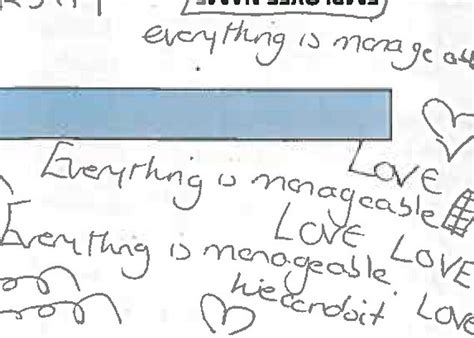 EMPLOYEE NAME
everything is manageab
LOVE
Everything is manageable
LOVE LOVE
Everything is manageable.
wecandoit LOVE